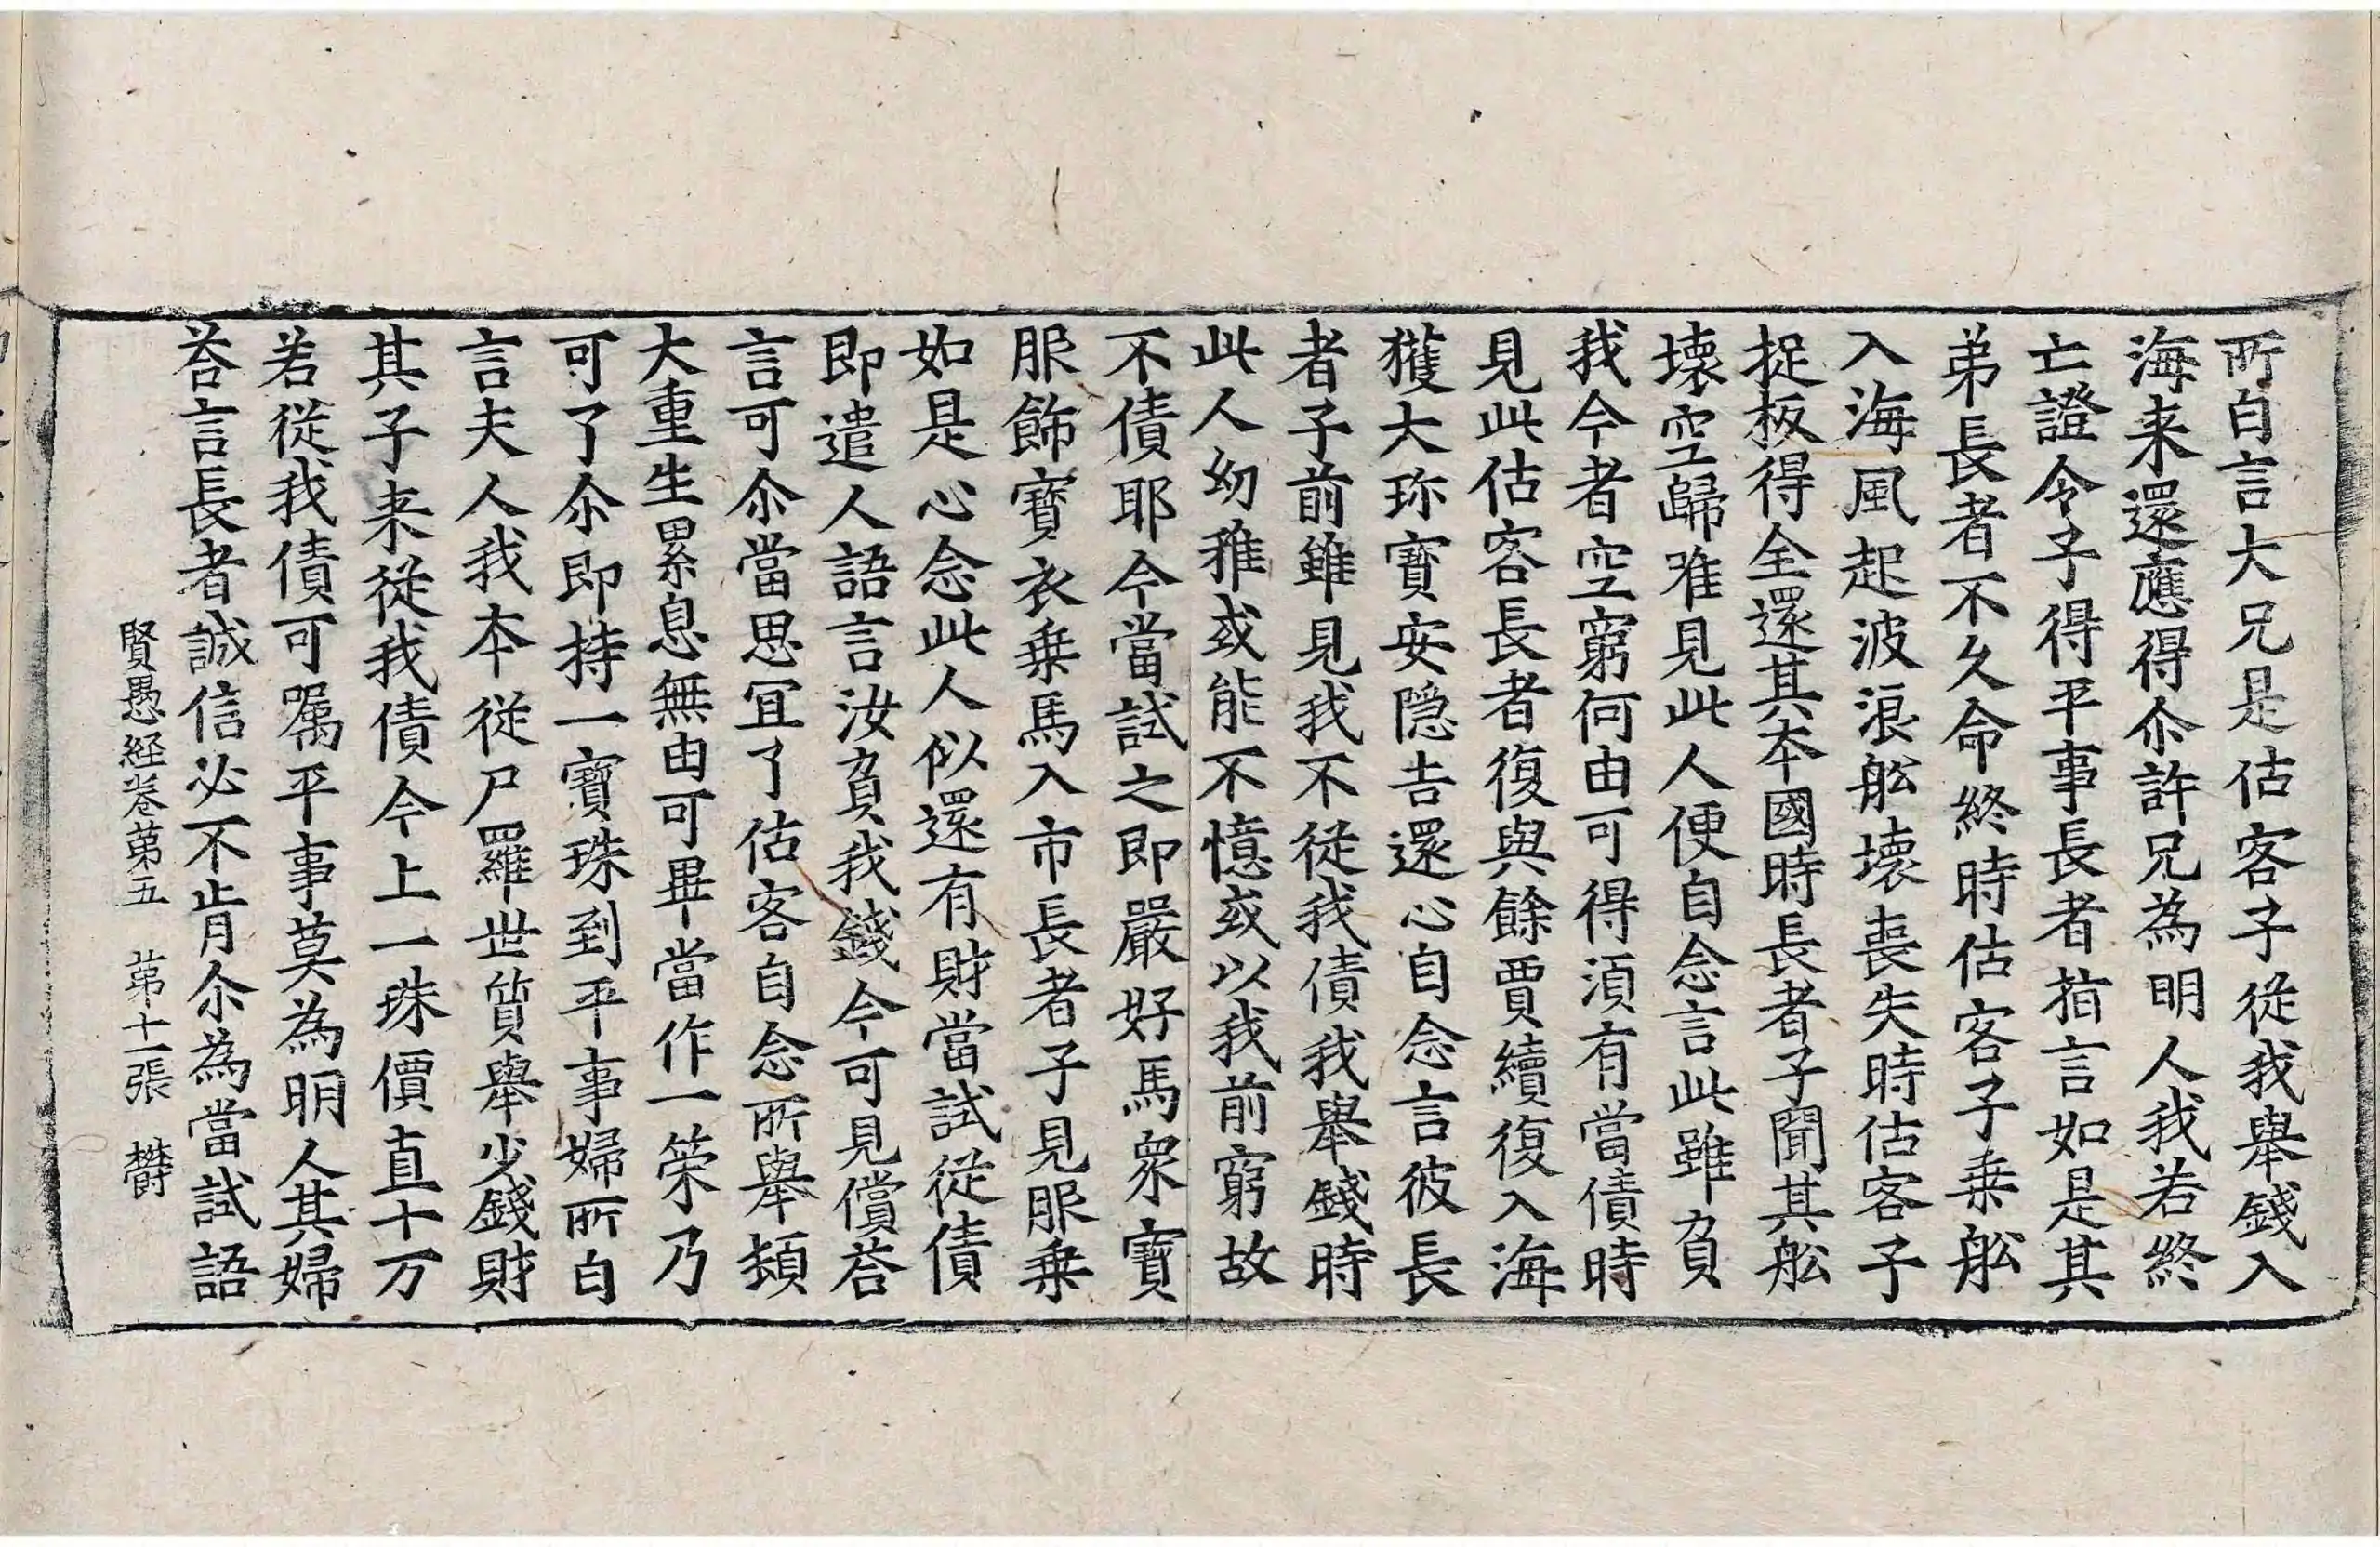 所白言大兄是估客子從我舉錢入
海来還應得尒許兄為明人我若終
亡證令子得平事長者指言如是其
弟長者不久命終時估客子乗舩
入海風起波浪舩壊喪失時估客子
捉板得全還其夲國時長者子聞其舩
壊空歸唯見此人便自念言此雖負
我今者空窮何由可得湏有當債時
見此估客長者復與餘賈續復入海
獲大珎寳安隠吉還心自念言彼長
者子前雖見我不從我債我舉錢時
此人幼稚或能不憶或以我前窮故
不債耶今當試之即嚴好馬衆寳
服飾寳衣乗馬入市長者子見服乗
如是心念此人似還有財當試從債
即遣人語言汝負我錢今可見償荅
言可尒當思冝了估客自念所舉頻
大重生累息無由可畢當作一䇿乃
可了尒即持一寳珠到平事婦所白
言夫人我夲從尸羅世質舉少錢財
其子来從我債今上一珠價直十万
若從我債可嘱平事莫為明人其婦
荅言長者誠信必不肯尒為當試語
賢愚経卷苐五　苐十一張　欝